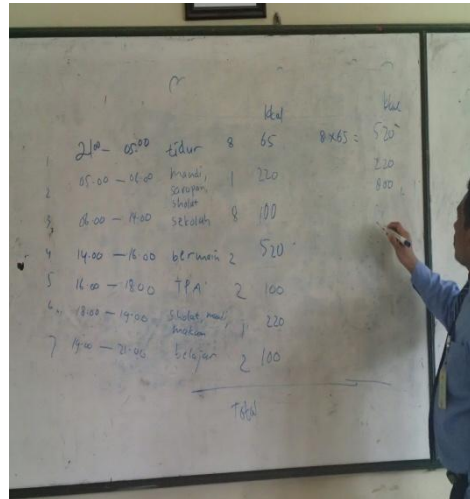 kkal kkal
1 21.00 - 05.00 tidur 8 65 8x65 = 520
2 05.00 - 06.00 mandi, sarapan, sholat 1 220 220
3 06.00 - 14.00 sekolah 8 100 800
4 14.00 - 16.00 bermain 2 520
5 16.00 - 18.00 TPA 2 100
6. 18.00 - 19.00 sholat, makan 1 220
7 19.00 - 21.00 belajar 2 100
Total